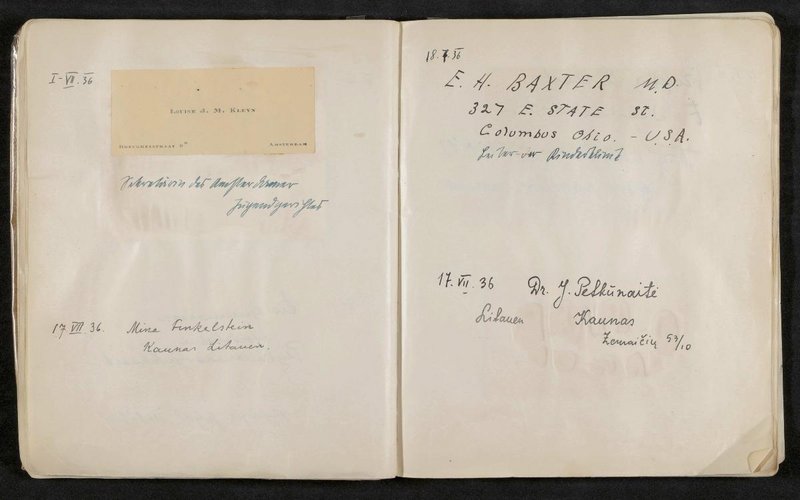 I-VII.36
LOUISE J. M. KLEYN
AMSTERDAM
Sekretärin des Amsterdamer
Jugendgerichtes
17 VII 36. Mina Finkelstein
Kaunas Litauen.
18. 7. 36
E. H. BAXTER M.D.
327 E. STATE St.
Columbus Ohio. - U.S.A.
Leiter der Kinderklinik
17. VII. 36 Dr. J. Petkūnaitė
Litauen Kaunas
Žemaičių 53/10